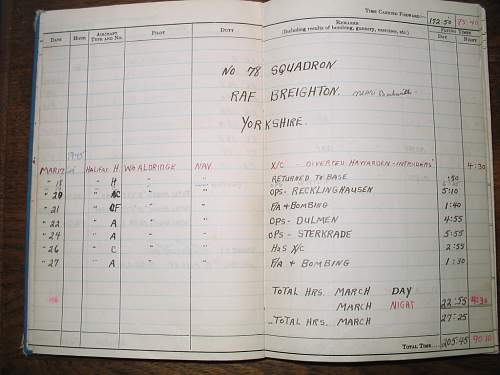 TIME CARRIED FORWARD:— 152.50 85.40
DATE HOUR AIRCRAFT TYPE AND NO. PILOT DUTY REMARKS (Including results of bombing, gunnery, exercises, etc.) FLYING TIMES DAY NIGHT
NO 78 SQUADRON
RAF BREIGHTON. near
YORKSHIRE.
1945
MAR 17 HALIFAX H W/O ALDRIDGE NAV X/C - DIVERTED HAWARDEN - INTRUDERS 4:30
" 18 " H " " RETURNED TO BASE :50
" 20 " " " OPS - RECKLINGHAUSEN 5:10
" 21 " " " F/A + BOMBING 1:40
" 22 " A " " OPS - DULMEN 4:55
" 24 " A " " OPS - STERKRADE 5:55
" 26 " C " " H2S X/C 2:55
" 27 " A " " F/A + BOMBING 1:30
TOTAL HRS. MARCH DAY
MARCH NIGHT 22:55 4:30
TOTAL HRS. MARCH 27:25
TOTAL TIME 205:45 90.10